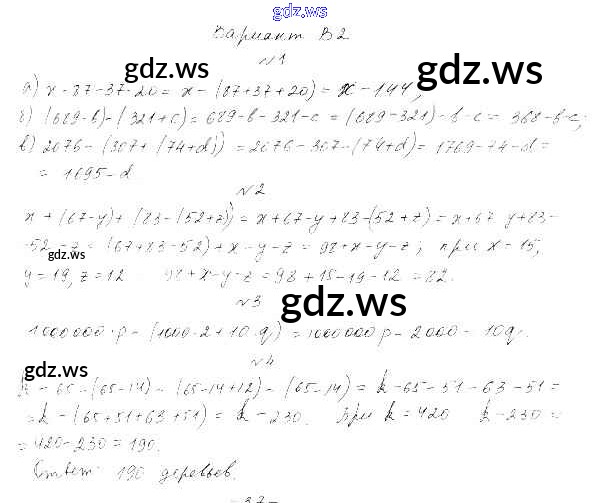 gdz.ws
Вариант В2
gdz.ws
gdz.ws
№1
а) x-87-37-20= x-(87+37+20)= x-144;
б) (689-b)-(321+c)=689-b-321-c=(689-321)-b-c= 368-b-c;
в) 2076-(307+(74+d))=2076-307-(74+d)=1769-74-d=
= 1695-d
№2
x+(67-y)+(83-(52+z))=x+67-y+83-(52+z)=x+67-y+83-
-52-z= (67+83-52)+x-y-z= 98+x-y-z; при x=15,
gdz.ws
y=19, z=12 98+x-y-z=98+15-19-12=82.
№3
gdz.ws
1000000·p-(1000·2+10·q)=1000000p-2000-10q.
№4
gdz.ws
k-65-(65-14)-(65-14+12)-(65-14)= k-65-51-63-51=
=k-(65+51+63+51)= k-230. При k=420 k-230=
=420-230=190.
Ответ: 190 деревьев.
-37-